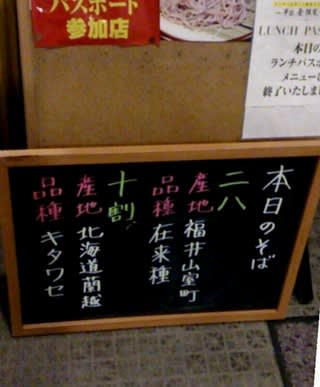 パスポート
参加店
LUNCH PAS
本日の
ランチパス
メニューは
終了いたしま
本日のそば
二八
産地 福井山室町
品種 在来種
十割
産地 北海道蘭越
品種 キタワセ